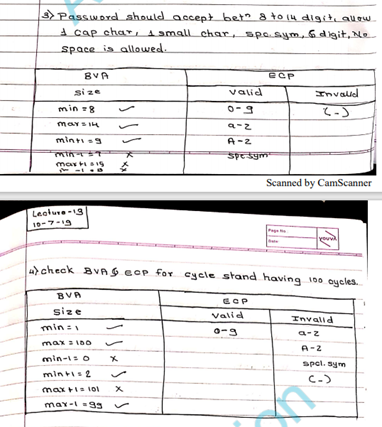 3) Password should accept betn 8 to 14 digit, allow
1 cap char, 1 small char, spc.sym, & digit, No
space is allowed.
BVA ECP
size valid Invalid
min = 8 ✓ 0-9 (-)
max = 14 ✓ a-z
min+1 = 9 ✓ A-Z
min-1 = 7 x spc.sym
max+1 = 15 x
Scanned by CamScanner
Lecture-19
10-7-19
Page No.
Date
YOUVA
4) check BVA & ECP for cycle stand having 100 cycles.
BVA ECP
Size valid Invalid
min = 1 ✓ 0-9 a-z
max = 100 ✓ A-Z
min-1 = 0 x spcl.sym
min+1 = 2 ✓ (-)
max+1 = 101 x
max-1 = 99 ✓